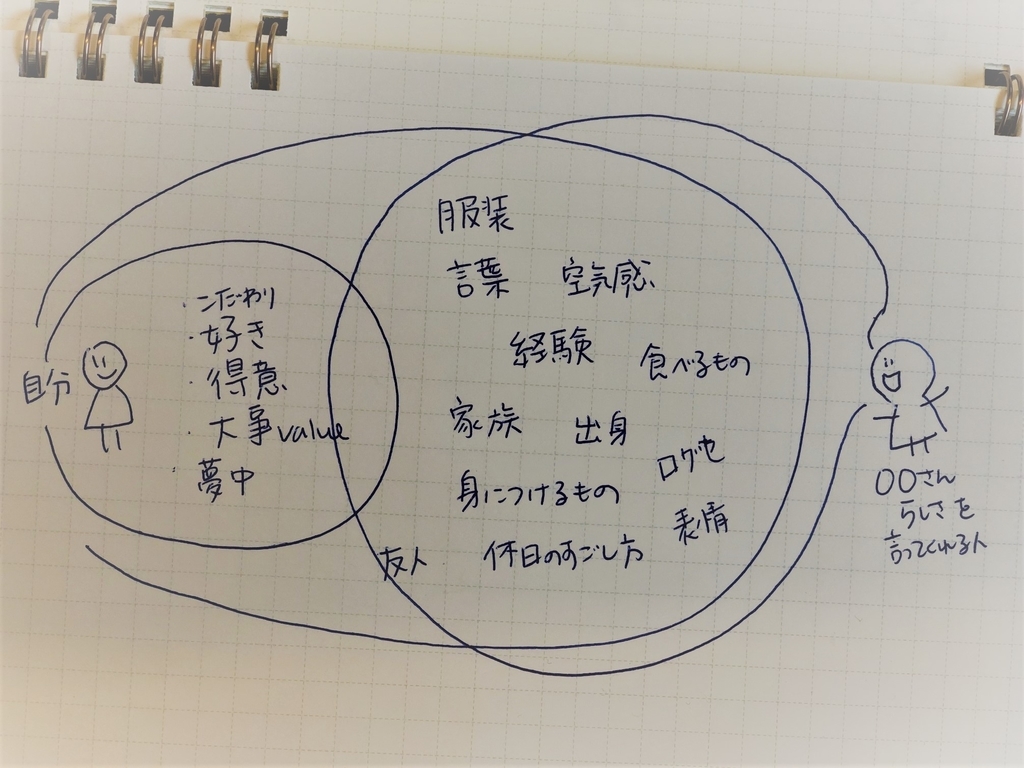 自分
・こだわり
・好き
・得意
・大事value
・夢中
服装
言葉
空気感
経験
食べるもの
家族
出身
ログセ
身につけるもの
表情
友人
休日のすごし方
〇〇さん
らしさを
言ってくれる人